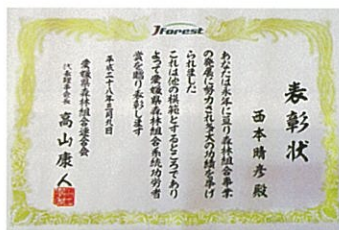 Jforest
表彰状
西本晴彦殿
あなたは永年に亘り森林組合事業
の発展に努力され多大の功績を挙げ
られました
これは他の模範とするところであり
よって愛媛県森林組合系統功労者
賞を贈り表彰します
平成二十八年
愛媛県森林組合連合会
代表理事会長 高山康人